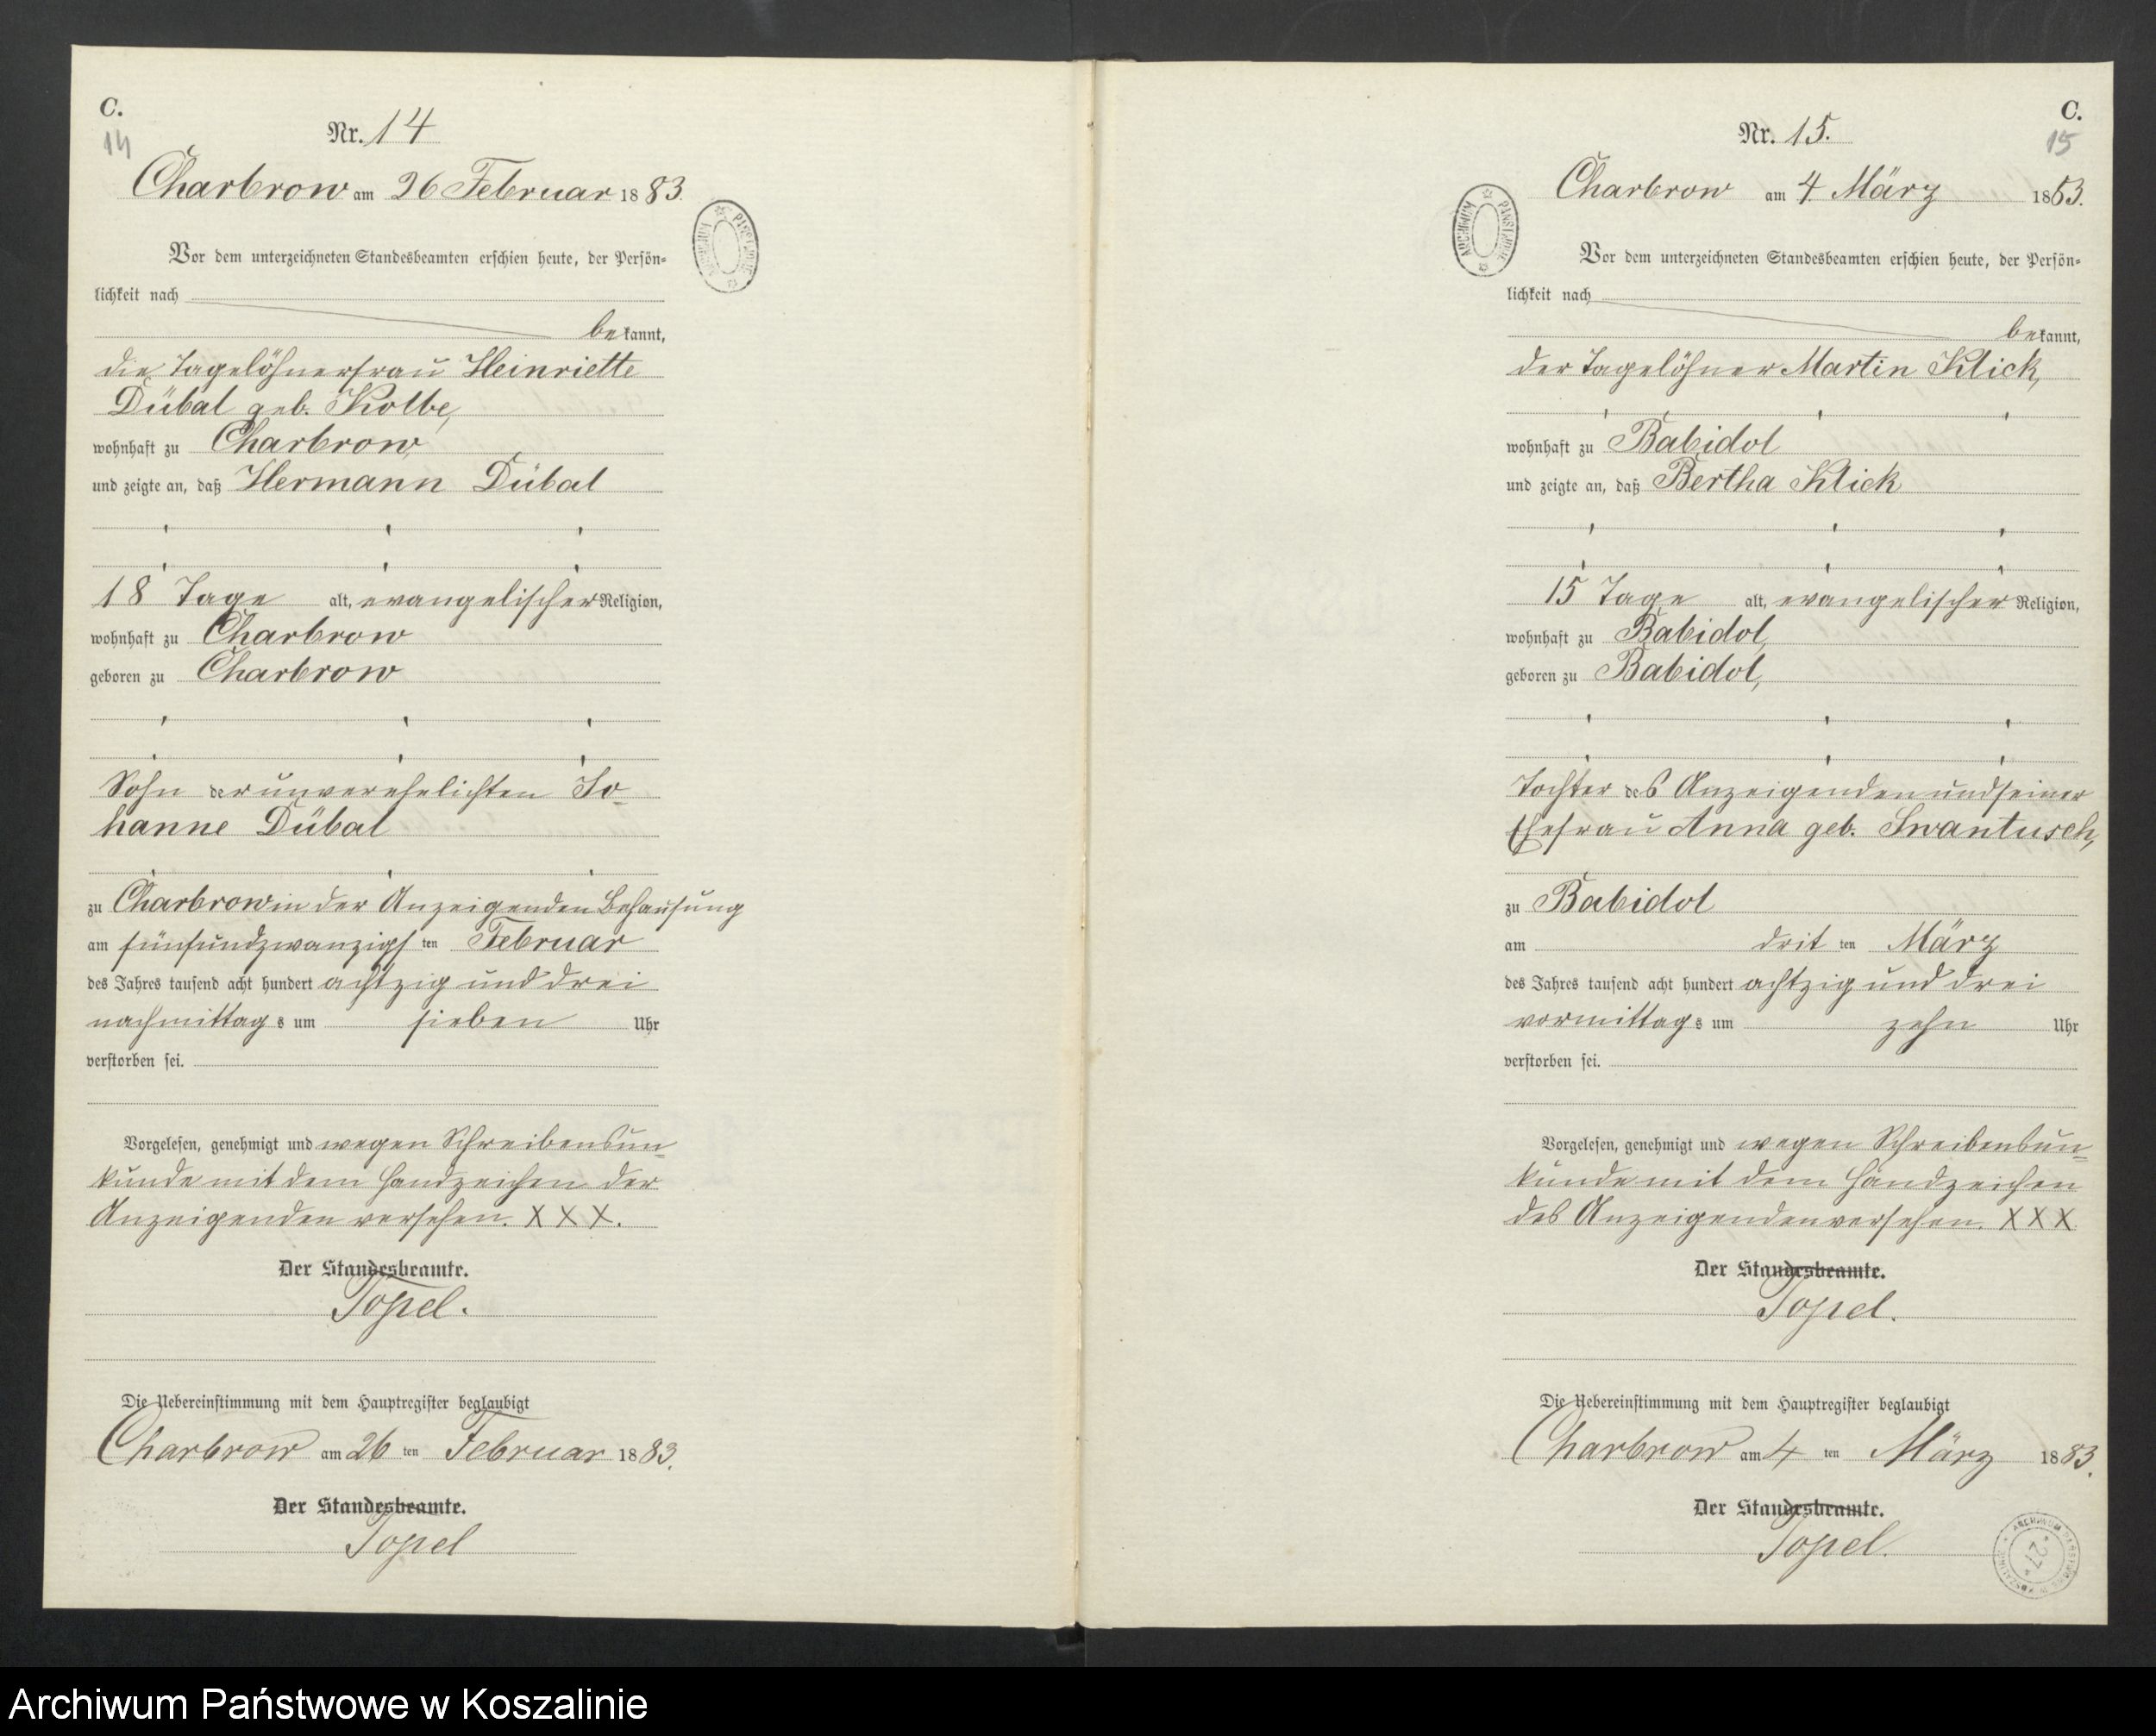 C.
14
Nr. 14
Charbrow am 26 Februar 1883.
Vor dem unterzeichneten Standesbeamten erschien heute, der Persön=
lichkeit nach
bekannt,
die Tagelöhnerfrau Heinriette
Dübal geb. Kolbe,
wohnhaft zu Charbrow
und zeigte an, daß Hermann Dübal
18 Tage alt, evangelischer Religion,
wohnhaft zu Charbrow
geboren zu Charbrow
Sohn der unverehelichten Jo-
hanne Dübal
zu Charbrow in der Anzeigenden Behausung
am fünfundzwanzigsten Februar
des Jahres tausend acht hundert achtzig und drei
nachmittags um sieben Uhr
verstorben sei.
Vorgelesen, genehmigt und wegen Schreibensun=
kunde mit dem Handzeichen der
Anzeigenden versehen. XXX.
Der Standesbeamte.
Topel.
Die Uebereinstimmung mit dem Hauptregister beglaubigt
Charbrow am 26 ten Februar 1883.
Der Standesbeamte.
Topel
ARCHIWUM PAŃSTWOWE
C.
15
Nr. 15.
Charbrow am 4. März 1883.
ARCHIWUM PAŃSTWOWE
Vor dem unterzeichneten Standesbeamten erschien heute, der Persön=
lichkeit nach
bekannt,
der Tagelöhner Martin Klick,
wohnhaft zu Babidol
und zeigte an, daß Bertha Klick
15 Tage alt, evangelischer Religion,
wohnhaft zu Babidol,
geboren zu Babidol,
Tochter des Anzeigenden und seiner
Ehefrau Anna geb. Swantusch,
zu Babidol
am dritten März
des Jahres tausend acht hundert achtzig und drei
vormittags um zehn Uhr
verstorben sei.
Vorgelesen, genehmigt und wegen Schreibensun=
kunde mit dem Handzeichen
des Anzeigenden versehen. XXX
Der Standesbeamte.
Topel.
Die Uebereinstimmung mit dem Hauptregister beglaubigt
Charbrow am 4 ten März 1883.
Der Standesbeamte.
Topel.
ARCHIWUM PAŃSTWOWE W KOSZALINIE
* 27 *
Archiwum Państwowe w Koszalinie